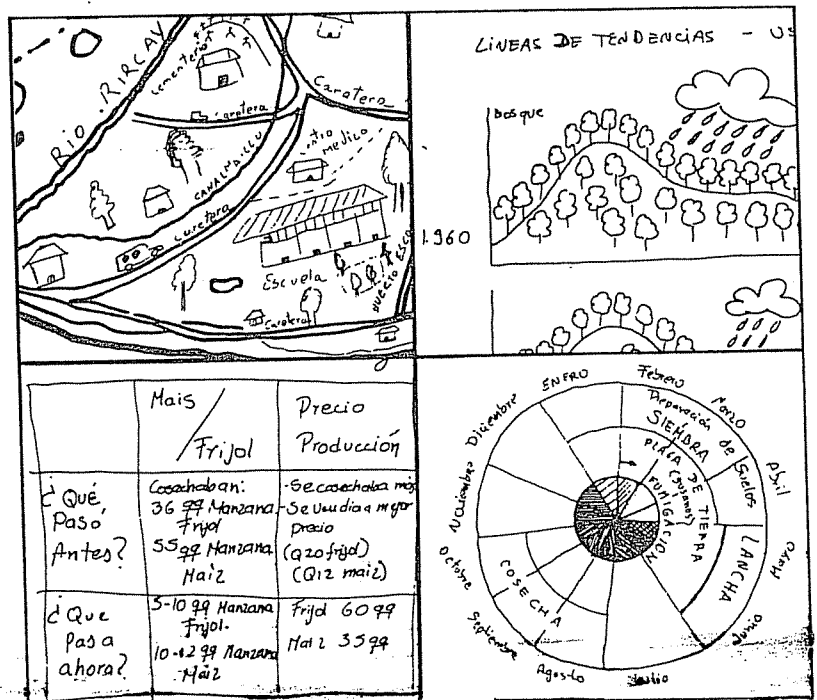 RIO RIRCAY
Cementerio
Carretera
Carotera
CANAL
Curetera
Centro
MEDICO
Escuela
Carotera
LINEAS DE TENDENCIAS - US
Bosque
1.960
Mais
/
Frijol
Precio
Producción
¿Qué
Pasó
Antes?
Cosechaban:
36 qq Manzana
Frijol
55 qq Manzana
Maiz
- Se cosechaba más
- Se vendia a mejor
precio
(Q20 frijol)
(Q12 maiz)
¿Que
Pasa
ahora?
5-10 qq Manzana
Frijol.
10-12 qq Manzana
Maiz
Frijol 60 qq
Maiz 35 qq
ENERO
Febrero
Marzo
Abril
Mayo
Junio
Julio
Agosto
Septiembre
Octubre
Noviembre
Diciembre
Preparación de Suelos
SIEMBRA
PLACA DE TIERRA
(gusanos)
FUMIGACION
LANCHA
COSECHA